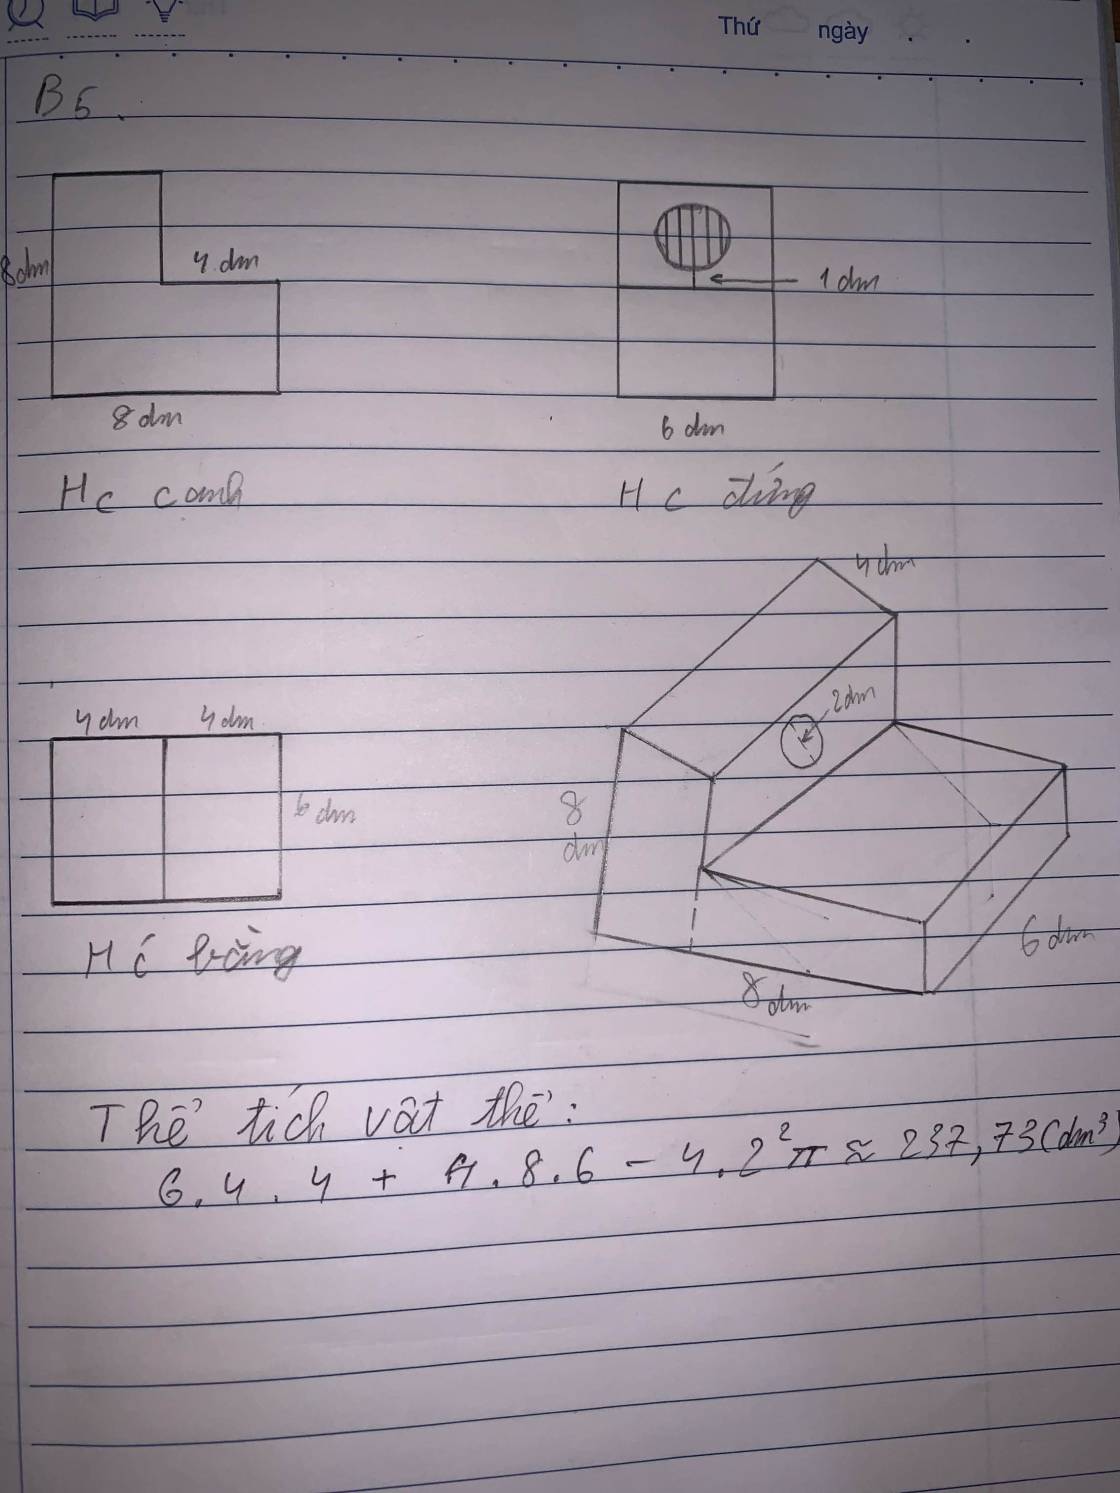 Thứ ngày . .
B5.
8dm
4 dm
1 dm
8 dm
6 dm
Hc cạnh
Hc đứng
4 dm
4 dm 4 dm
2dm
6 dm
8 dm
6 dm
8 dm
Hc bằng
Thể tích vật thể:
6.4.4 + 4.8.6 - 4.2²π ≈ 237,73(dm³)